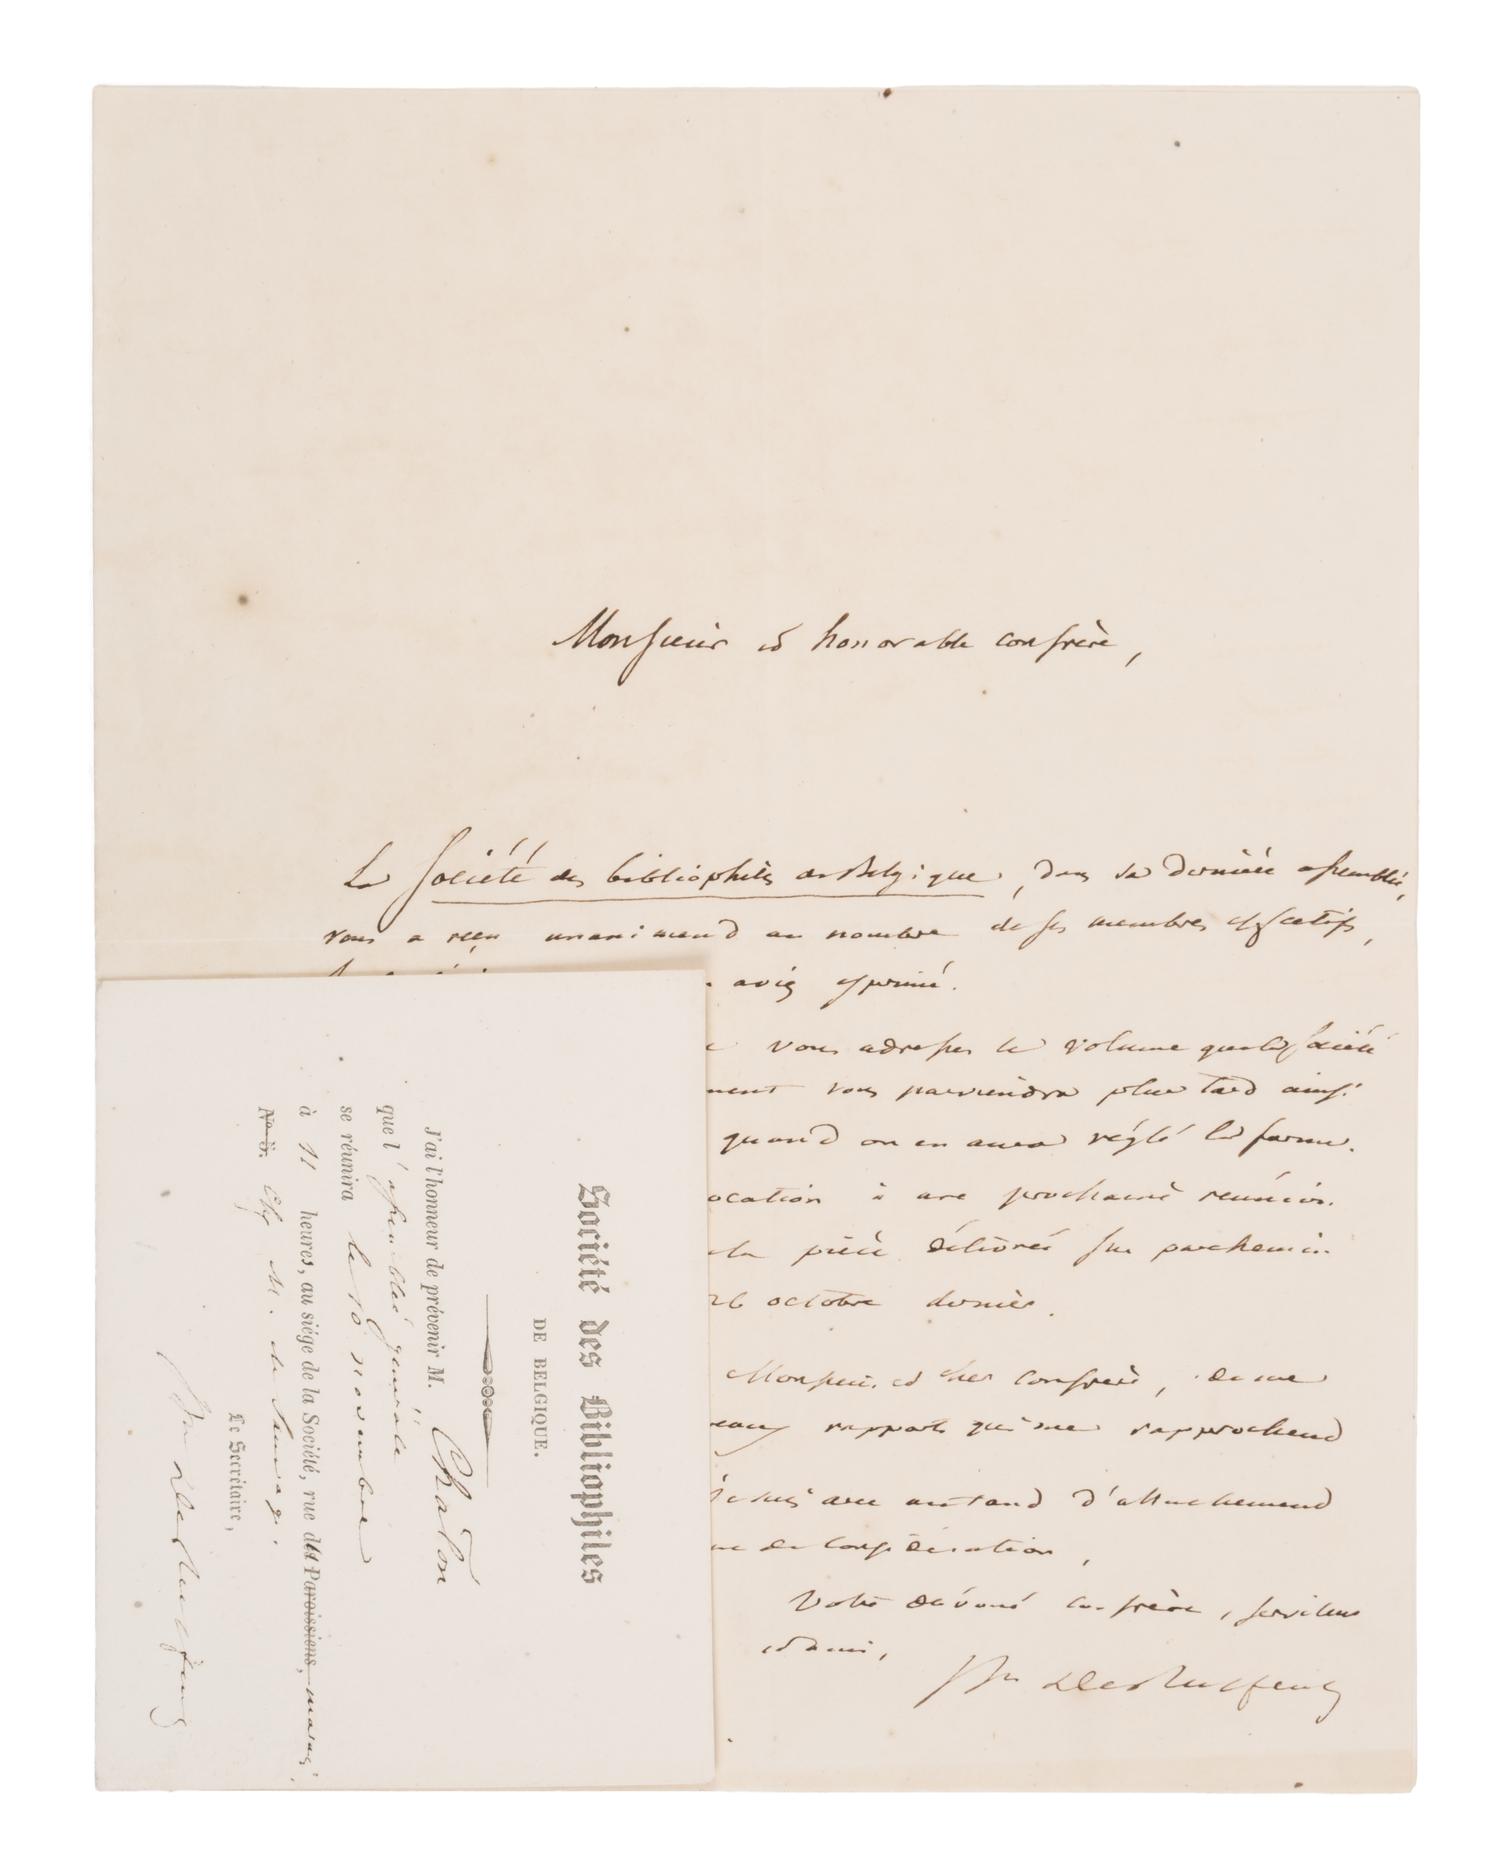 Monsieur et honorable confrère,
La Société des bibliophiles de Belgique, dans sa dernière assemblée,
vous a reçu unanimement au nombre de ses membres effectifs,
avis exprimé.
vous adresser le volume que la Société
ment vous parviendra plus tard ainsi
quand on en aura réglé la forme.
ocation à une prochaine réunion.
la pièce délivrée sur parchemin
26 octobre dernier.
Monsieur et cher confrère, de me
eaux rapports qui me rapprochent
je suis avec autant d'attachement
ue de considération,
Votre dévoué confrère, serviteur
et ami,
Société des Bibliophiles
DE BELGIQUE.
J'ai l'honneur de prévenir M. Chalon
que l'assemblée générale
se réunira le 10 novembre
à 11 heures, au siége de la Société, rue des Paroissiens, maison
Chez M. de
Le Secrétaire,